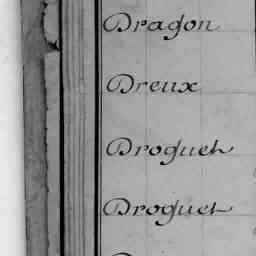 Dragon
Dreux
Droguet
Droguet